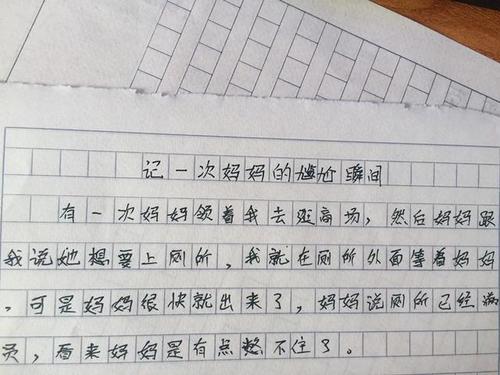 记一次妈妈的尴尬瞬间
有一次妈妈领着我去逛商场，然后妈妈跟
我说她想要上厕所，我就在厕所外面等着妈妈
，可是妈妈很快就出来了，妈妈说厕所已经满
员，看来妈妈是有点憋不住了。